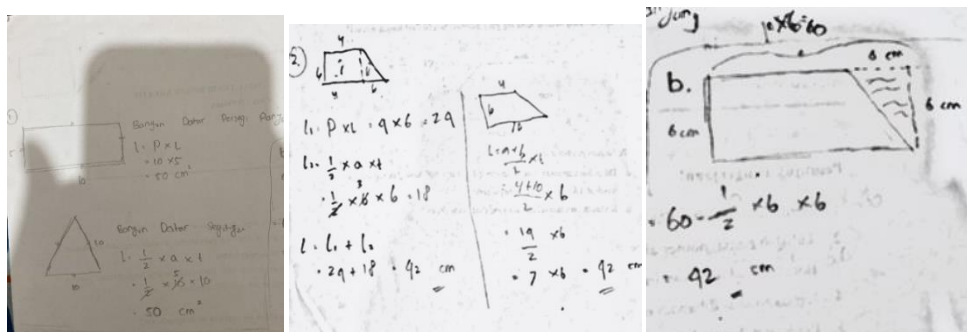 1
5
10
Bangun Datar Persegi Panjang
L = P x L
= 10 x 5
= 50 cm²
10
10
Bangun Datar Segitiga
L = 1/2 x a x t
= 1/2 x 10 x 10
5
= 50 cm²
2.
4
6
6
4
6
L₁ = P x L = 4 x 6 = 24
L₂ = 1/2 x a x t
= 1/2 x 6 x 6 = 18
3
L = L₁ + L₂
= 24 + 18 = 42 cm
4
6
10
L = a+b/2 x t
4+10/2 x 6
= 14/2 x 6
= 7 x 6 = 42 cm
x 6 = 60
b.
6 cm
6 cm
6 cm
= 60 - 1/2 x 6 x 6
= 42 cm